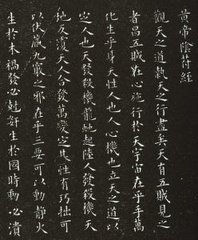 黃帝陰符經
觀天之道執天之行盡矣天有五賊見之
者昌五賊在心施行於天宇宙在乎手萬
化生乎身天性人也人心機也立天之道以
定人也天發殺機龍蛇起陸人發殺機天
地反覆天人合發萬變定基性有巧拙可
以伏藏九竅之邪在乎三要可以動靜火
生於木禍發必尅姧生於國時動必潰